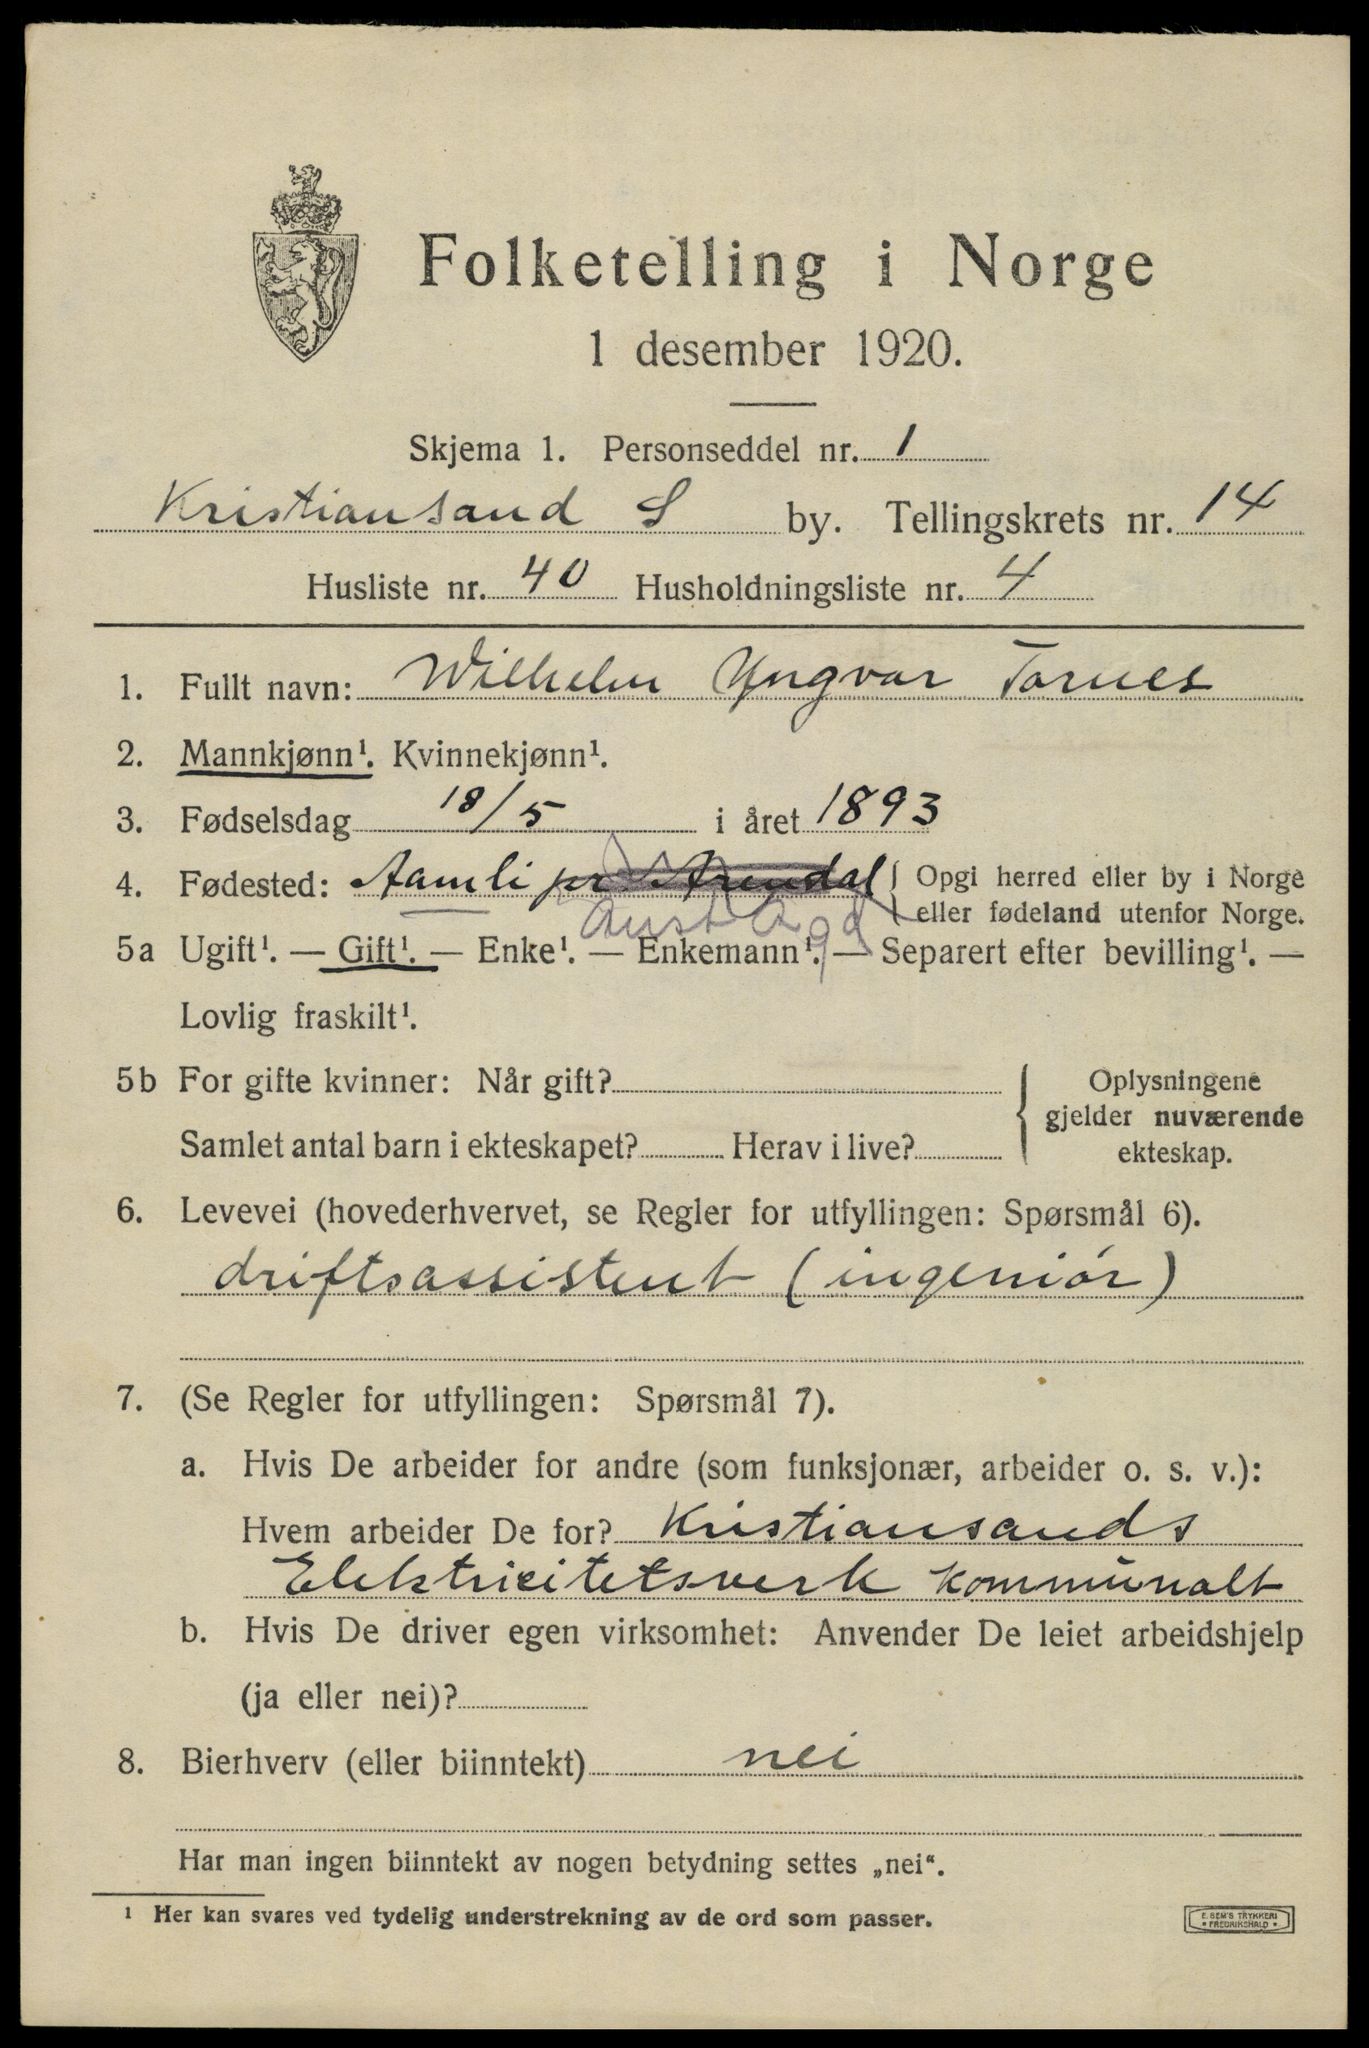 Folketelling i Norge
1 desember 1920.
Skjema 1. Personseddel nr. 1
Kristiansand S by. Tellingskrets nr. 14
Husliste nr. 40 Husholdningsliste nr. 4
1. Fullt navn: Wilhelm Yngvar Tornes
2. Mannkjønn¹. Kvinnekjønn¹.
3. Fødselsdag 18/5 i året 1893
4. Fødested: Aamli pr. Arendal { Opgi herred eller by i Norge
eller fødeland utenfor Norge.
Aust Agd
5a Ugift¹. — Gift¹. — Enke¹. — Enkemann¹. — Separert efter bevilling¹. —
Lovlig fraskilt¹.
5b For gifte kvinner: Når gift?
Samlet antal barn i ekteskapet? Herav i live?
Oplysningene
gjelder nuværende
ekteskap.
6. Levevei (hovederhvervet, se Regler for utfyllingen: Spørsmål 6).
driftsassistent (ingeniør)
7. (Se Regler for utfyllingen: Spørsmål 7).
a. Hvis De arbeider for andre (som funksjonær, arbeider o. s. v.):
Hvem arbeider De for? Kristiansands
Elektricitetsverk kommunalt
b. Hvis De driver egen virksomhet: Anvender De leiet arbeidshjelp
(ja eller nei)?
8. Bierhverv (eller biinntekt) nei
Har man ingen biinntekt av nogen betydning settes „nei“.
¹ Her kan svares ved tydelig understrekning av de ord som passer.
E. SEM'S TRYKKERI
• FREDRIKSHALD •